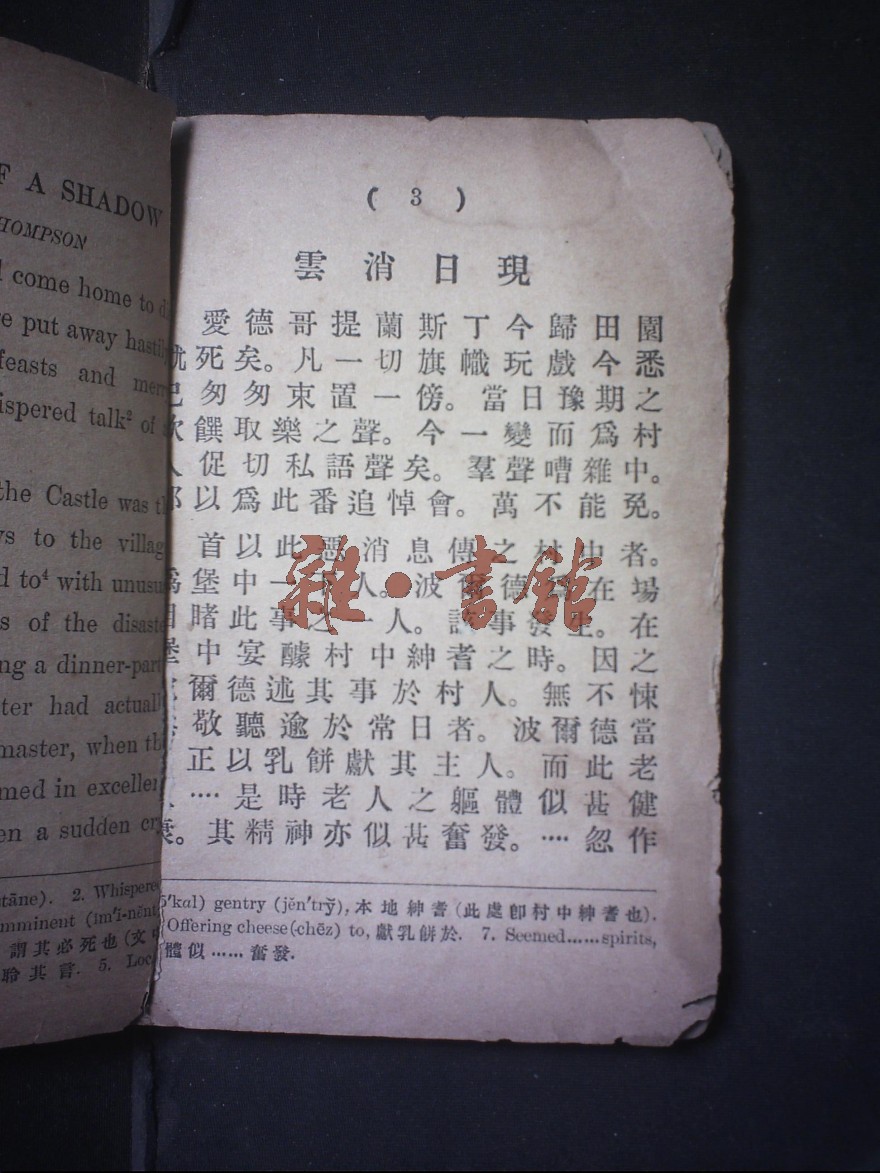 F A SHADOW
HOMPSON
come home to di
re put away hastily
feasts and mer
ispered talk² of
the Castle was th
ws to the villag
d to⁴ with unusu
s of the disaste
ing a dinner-part
ter had actuall
master, when th
med in excellen
en a sudden cr
tāne). 2. Whispere
mminent (ĭm'ĭ-nĕnt
謂其必死也(文中
聆其言. 5. Loc
( 3 )
雲消日現
愛德哥提蘭斯丁今歸田園
就死矣。凡一切旗幟玩戲今悉
已匆匆束置一傍。當日豫期之
飲饌取樂之聲。今一變而爲村
人促切私語聲矣。羣聲嘈雜中。
都以爲此番追悼會。萬不能免。
首以此惡消息傳之村中者。
爲堡中一下人。波爾德在場
目睹此事之一人。該事發生。在
堡中宴醵村中紳耆之時。因之
爾德述其事於村人。無不悚
敬聽逾於常日者。波爾德當
正以乳餅獻其主人。而此老
…是時老人之軀體似甚健
康。其精神亦似甚奮發。…忽作
kal) gentry (jĕn'trў), 本地紳耆(此處卽村中紳耆也).
Offering cheese (chēz) to, 獻乳餅於. 7. Seemed……spirits,
體似……奮發.
雜·書館